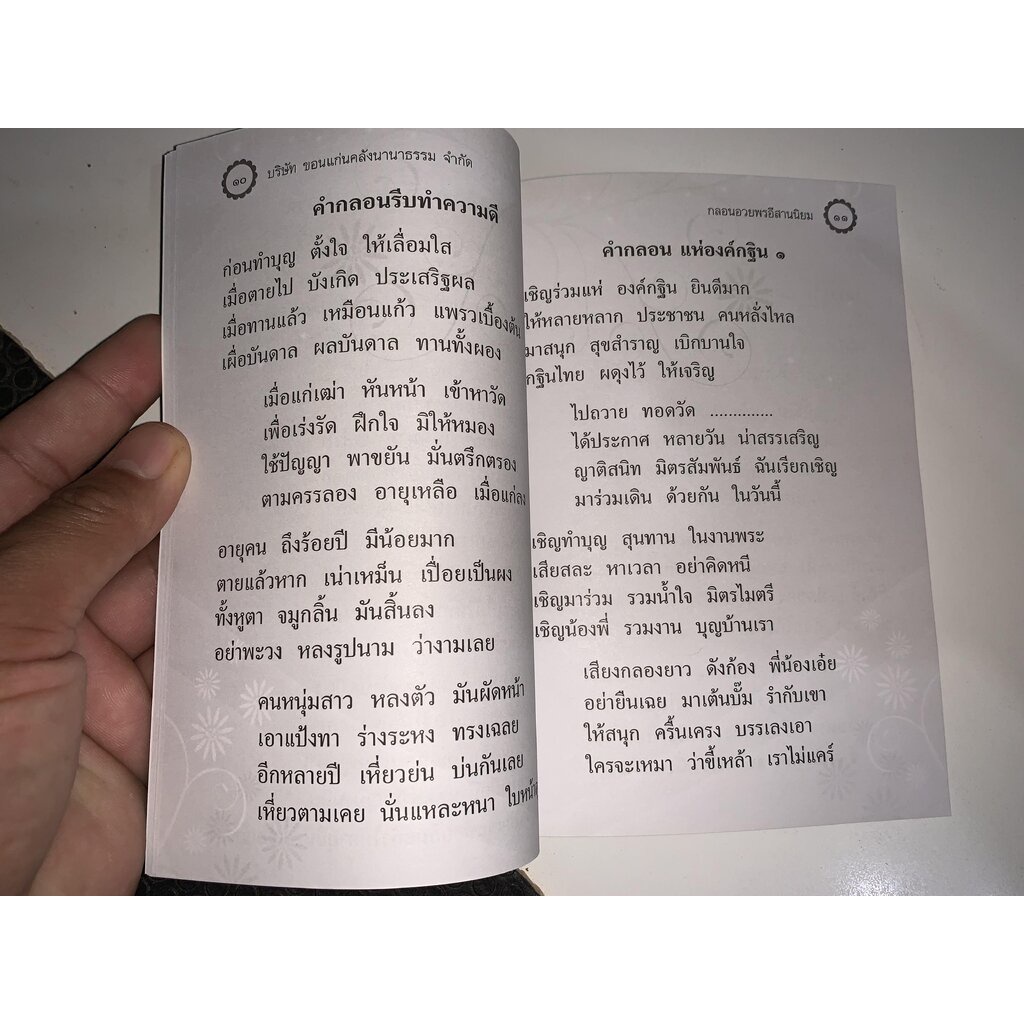 ๑๐
บริษัท ขอนแก่นคลังนานาธรรม จำกัด
คำกลอนรีบทำความดี
ก่อนทำบุญ ตั้งใจ ให้เลื่อมใส
เมื่อตายไป บังเกิด ประเสริฐผล
เมื่อทานแล้ว เหมือนแก้ว แพรวเบื้องต้น
เผื่อบันดาล ผลบันดาล ทานทั้งผอง
เมื่อแก่เฒ่า หันหน้า เข้าหาวัด
เพื่อเร่งรัด ฝึกใจ มิให้หมอง
ใช้ปัญญา พาขยัน มั่นตรึกตรอง
ตามครรลอง อายุเหลือ เมื่อแก่ลง
อายุคน ถึงร้อยปี มีน้อยมาก
ตายแล้วหาก เน่าเหม็น เปื่อยเป็นผง
ทั้งหูตา จมูกลิ้น มันสิ้นลง
อย่าพะวง หลงรูปนาม ว่างามเลย
คนหนุ่มสาว หลงตัว มันผัดหน้า
เอาแป้งทา ร่างระหง ทรงเฉลย
อีกหลายปี เหี่ยวย่น บ่นกันเลย
เหี่ยวตามเคย นั่นแหละหนา ใบหน้า
กลอนอวยพรอีสานนิยม
๑๑
คำกลอน แห่องค์กฐิน ๑
เชิญร่วมแห่ องค์กฐิน ยินดีมาก
ให้หลายหลาก ประชาชน คนหลั่งไหล
มาสนุก สุขสำราญ เบิกบานใจ
กฐินไทย ผดุงไว้ ให้เจริญ
ไปถวาย ทอดวัด ..............
ได้ประกาศ หลายวัน น่าสรรเสริญ
ญาติสนิท มิตรสัมพันธ์ ฉันเรียกเชิญ
มาร่วมเดิน ด้วยกัน ในวันนี้
เชิญทำบุญ สุนทาน ในงานพระ
เสียสละ หาเวลา อย่าคิดหนี
เชิญมาร่วม รวมน้ำใจ มิตรไมตรี
เชิญน้องพี่ รวมงาน บุญบ้านเรา
เสียงกลองยาว ดังก้อง พี่น้องเอ๋ย
อย่ายืนเฉย มาเต้นบั๊ม รำกับเขา
ให้สนุก ครื้นเครง บรรเลงเอา
ใครจะเหมา ว่าขี้เหล้า เราไม่แคร์